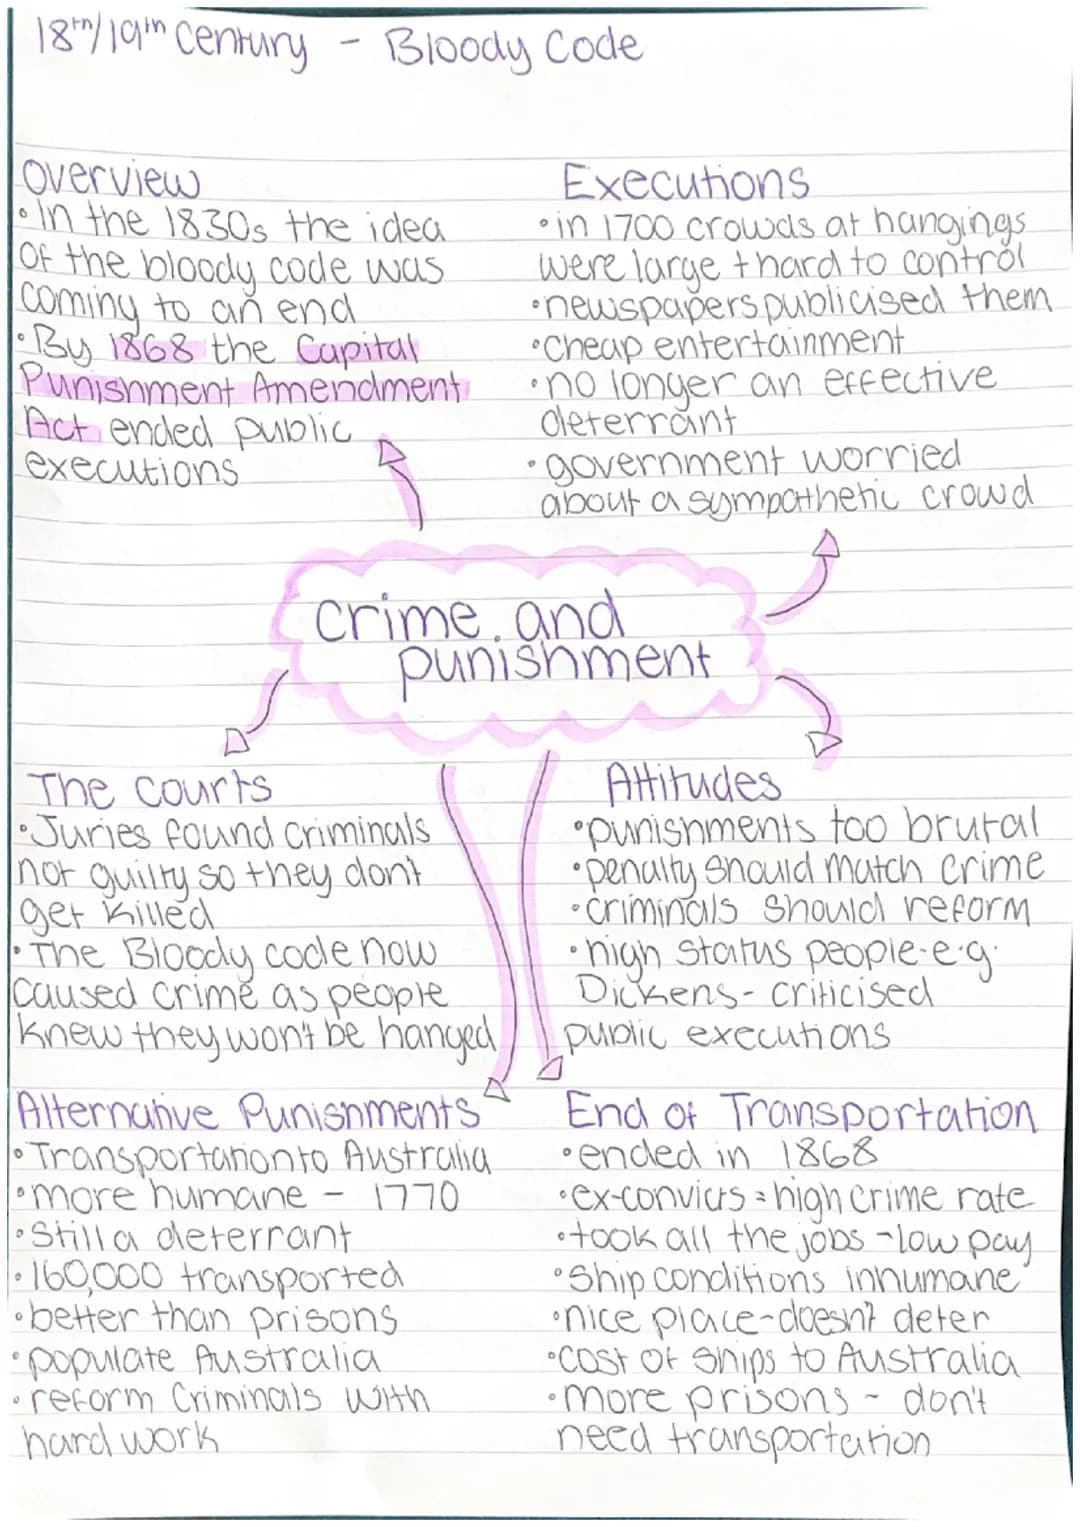 18th/19th Century - Bloody Code
Overview
• In the 1830s the idea
of the bloody code was
coming to an end
• By 1868 the Capital
Punishment Amendment
Act ended public
executions
Executions
• in 1700 crowds at hangings
were large + hard to control
• newspapers publicised them
• cheap entertainment
• no longer an effective
deterrant
• government worried
about a sympathetic crowd
Crime and
punishment
The Courts
• Juries found criminals
not guilty so they don't
get killed
• The Bloody code now
caused crime as people
knew they won't be hanged
Attitudes
• punishments too brutal
• penalty should match crime
• criminals should reform
• high status people - e.g.
Dickens - criticised
public executions
Alternative Punishments
• Transportation to Australia
• more humane - 1770
• Still a deterrant
• 160,000 transported
• better than prisons
• populate Australia
• reform Criminals with
hard work
End of Transportation
• ended in 1868
• ex-convicts = high crime rate
• took all the jobs - low pay
• Ship conditions inhumane
• nice place - doesn't deter
• cost of ships to Australia
• more prisons - don't
need transportation